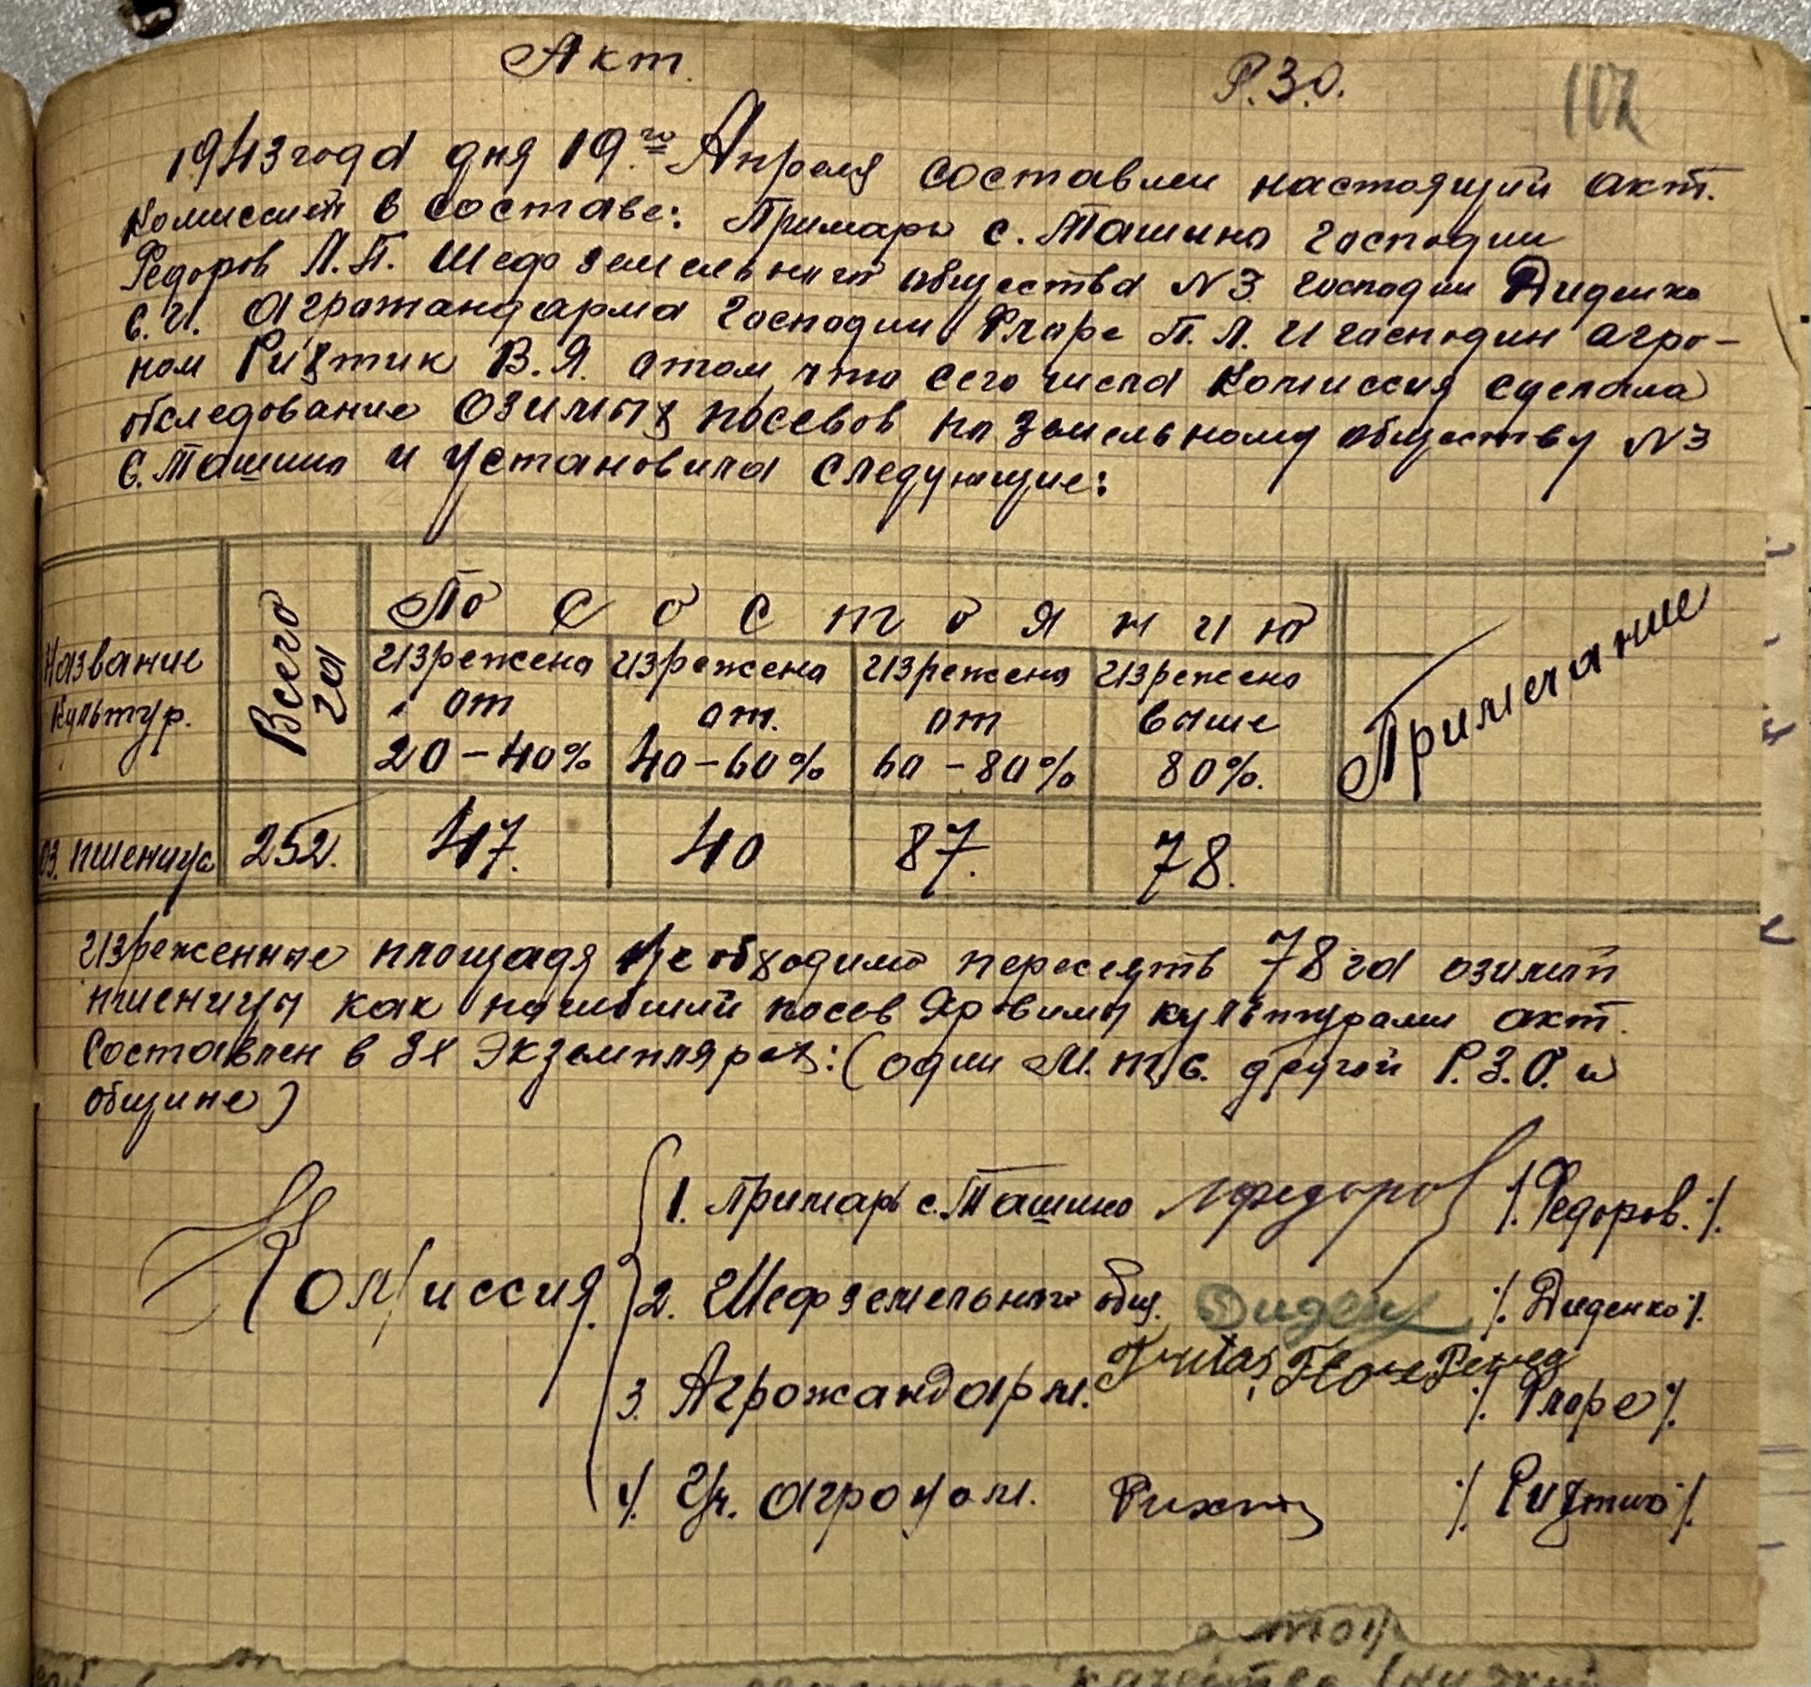 Акт.
Р.З.О.
102
1943 года дня 19го Апреля составлен настоящий акт.
Комиссией в составе: Примарь с. Ташино господин
Федоров Л.П. Шеф земельного общества N3 господин Диденко
С.И. Агрожандарма господин Флоре П.Л. и господин агро-
ном Рихтик В.Я. о том, что сего числа комиссия сделала
обследование озимых посевов по земельному обществу N3
с. Ташино и установила следующие:
Название культур.
Всего га
По состоянию
Примечание
Изрежено от 20-40%
Изрежено от. 40-60%
Изрежено от 60-80%
Изрежено выше 80%.
Оз. пшеница 252. 47. 40 87. 78.
Изреженные площадя необходимо пересеять 78 га озимой
пшеницы как погибший посев яровимы культурами акт.
Составлен в 3х Экземплярах: (один М.Т.С. другой Р.З.О. и
общине)
Комиссия.
1. Примарь с. Ташино Лфедоров /.Федоров./.
2. Шеф земельного общ. Диденк /.Диденко/.
3. Агрожандарм. Флоре /.Флоре/.
4/. Уч. агроном. Рихти /.Рихтик/.